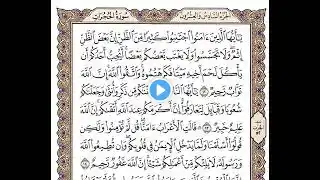 الجزء السادس والعشرون
سورة الحجرات
يَٰٓأَيُّهَا ٱلَّذِينَ ءَامَنُوا۟ ٱجْتَنِبُوا۟ كَثِيرًا مِّنَ ٱلظَّنِّ إِنَّ بَعْضَ ٱلظَّنِّ
إِثْمٌ وَلَا تَجَسَّسُوا۟ وَلَا يَغْتَب بَّعْضُكُم بَعْضًا أَيُحِبُّ أَحَدُكُمْ أَن
يَأْكُلَ لَحْمَ أَخِيهِ مَيْتًا فَكَرِهْتُمُوهُ وَٱتَّقُوا۟ ٱللَّهَ إِنَّ ٱللَّهَ
تَوَّابٌ رَّحِيمٌ ١٢ يَٰٓأَيُّهَا ٱلنَّاسُ إِنَّا خَلَقْنَٰكُم مِّن ذَكَرٍ وَأُنثَىٰ وَجَعَلْنَٰكُمْ
شُعُوبًا وَقَبَآئِلَ لِتَعَارَفُوٓا۟ إِنَّ أَكْرَمَكُمْ عِندَ ٱللَّهِ أَتْقَىٰكُمْ إِنَّ ٱللَّهَ
عَلِيمٌ خَبِيرٌ ١٣ قَالَتِ ٱلْأَعْرَابُ ءَامَنَّا قُل لَّمْ تُؤْمِنُوا۟ وَلَٰكِن
قُولُوٓا۟ أَسْلَمْنَا وَلَمَّا يَدْخُلِ ٱلْإِيمَٰنُ فِى قُلُوبِكُمْ وَإِن تُطِيعُوا۟ ٱللَّهَ
وَرَسُولَهُۥ لَا يَلِتْكُم مِّنْ أَعْمَٰلِكُمْ شَيْـًٔا إِنَّ ٱللَّهَ غَفُورٌ رَّحِيمٌ